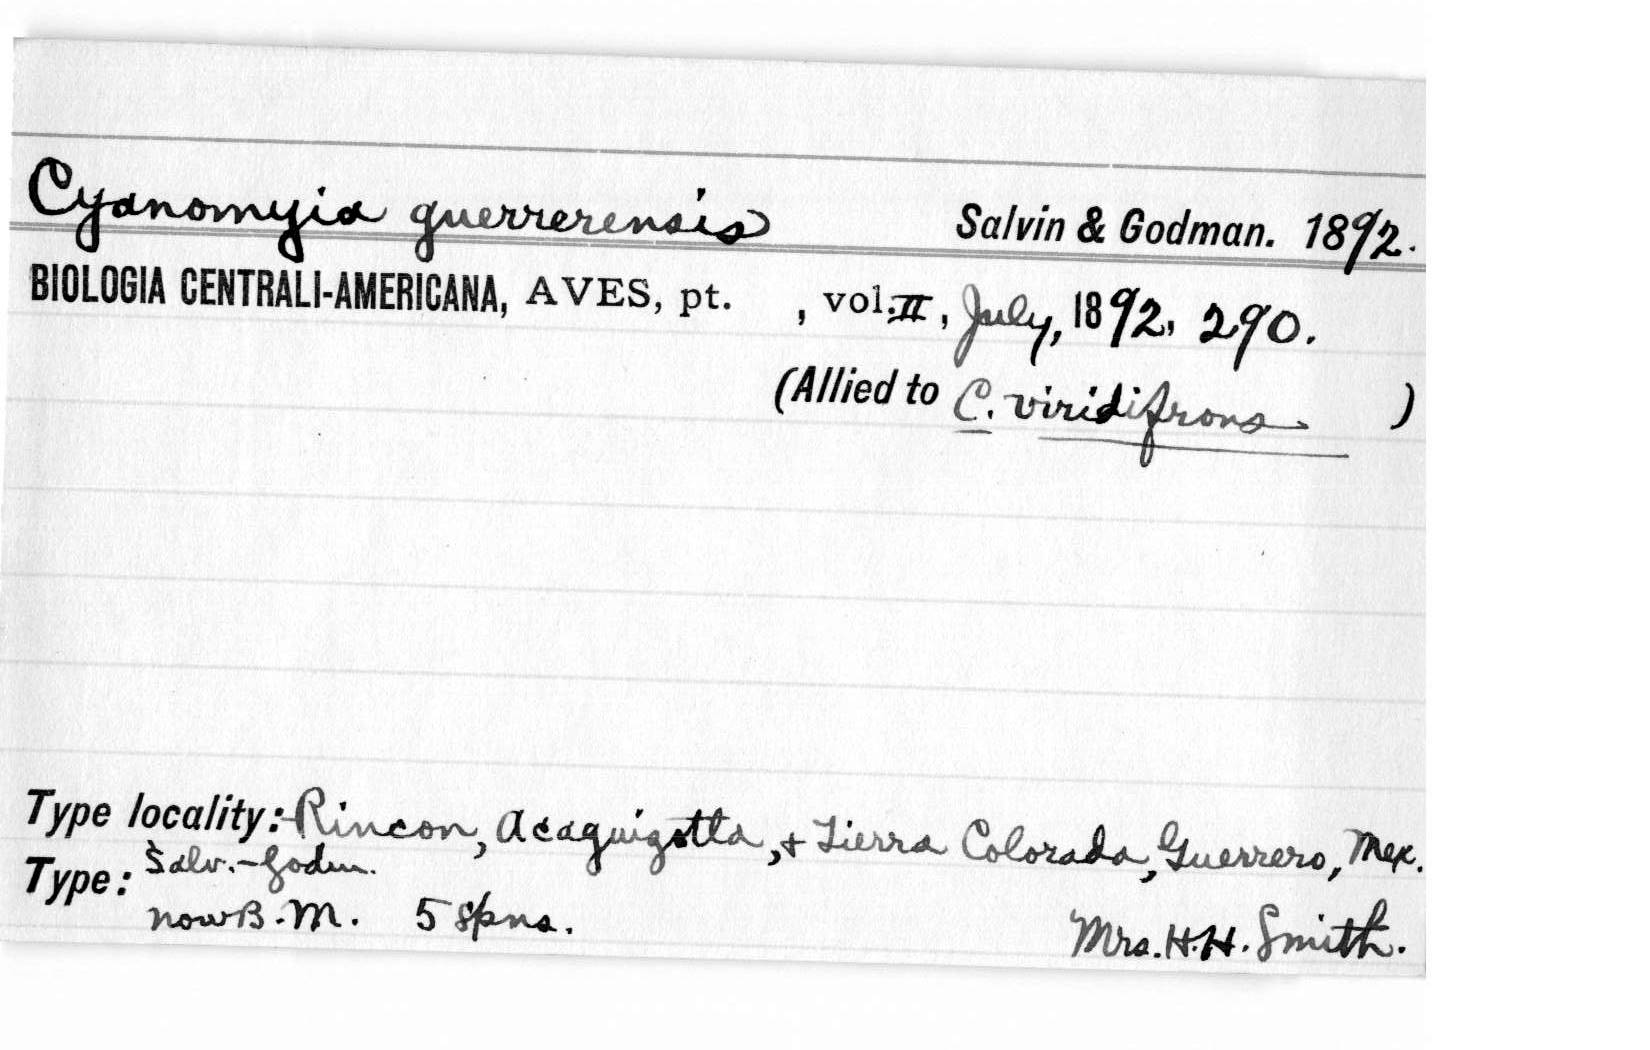 Cyanomyia guerrerensis Salvin & Godman. 1892.
BIOLOGIA CENTRALI-AMERICANA, AVES, pt. , vol. II, July, 1892, 290.
(Allied to C. viridifrons )
Type locality: Rincon, Acaguizotla, + Tierra Colorada, Guerrero, Mex.
Type: Salv.-Godm.
now B.M. 5 spns. Mrs. H.H. Smith.